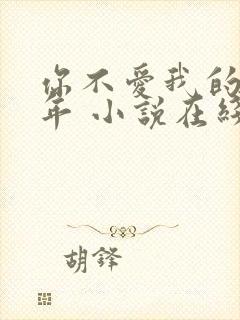 你不愛我的
年 小說在
胡鋒